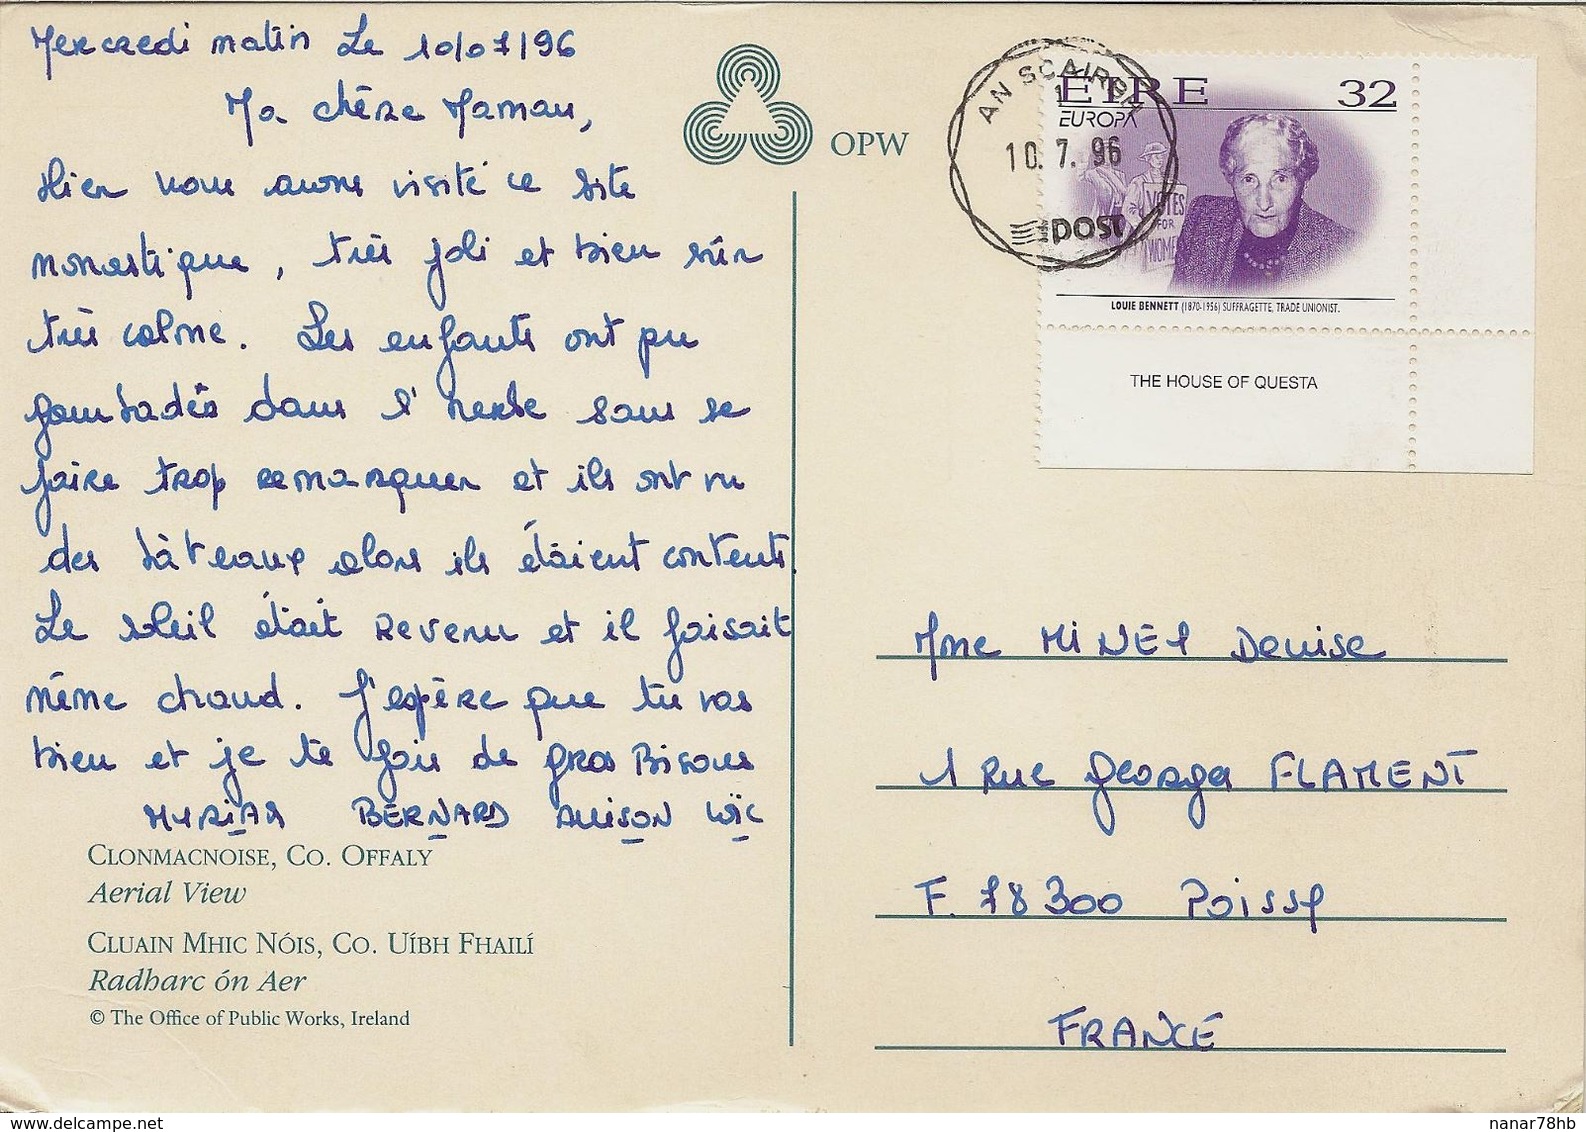 Mercredi matin Le 10/07/96
Ma chère Maman,
Hier nous avons visité ce site
monastique, très joli et bien sûr
très calme. Les enfants ont pu
gambader dans l'herbe sans se
faire trop remarquer et ils ont vu
des bâteaux alors ils étaient contents.
Le soleil était revenu et il faisait
même chaud. J'espère que tu vas
bien et je te fais de gros Bisous
MYRIAM BERNARD ALLISON LOÏC
CLONMACNOISE, CO. OFFALY
Aerial View
CLUAIN MHIC NÓIS, CO. UÍBH FHAILÍ
Radharc ón Aer
© The Office of Public Works, Ireland
OPW
AN SCAIRBH
1
10. 7. 96
post
ÉIRE 32
EUROPA
VOTES
FOR
WOMEN
LOUIE BENNETT (1870-1956) SUFFRAGETTE, TRADE UNIONIST.
THE HOUSE OF QUESTA
Mme MINET Denise
1 Rue Georges FLAMENT
F. 78300 Poissy
FRANCE
nanar78hb